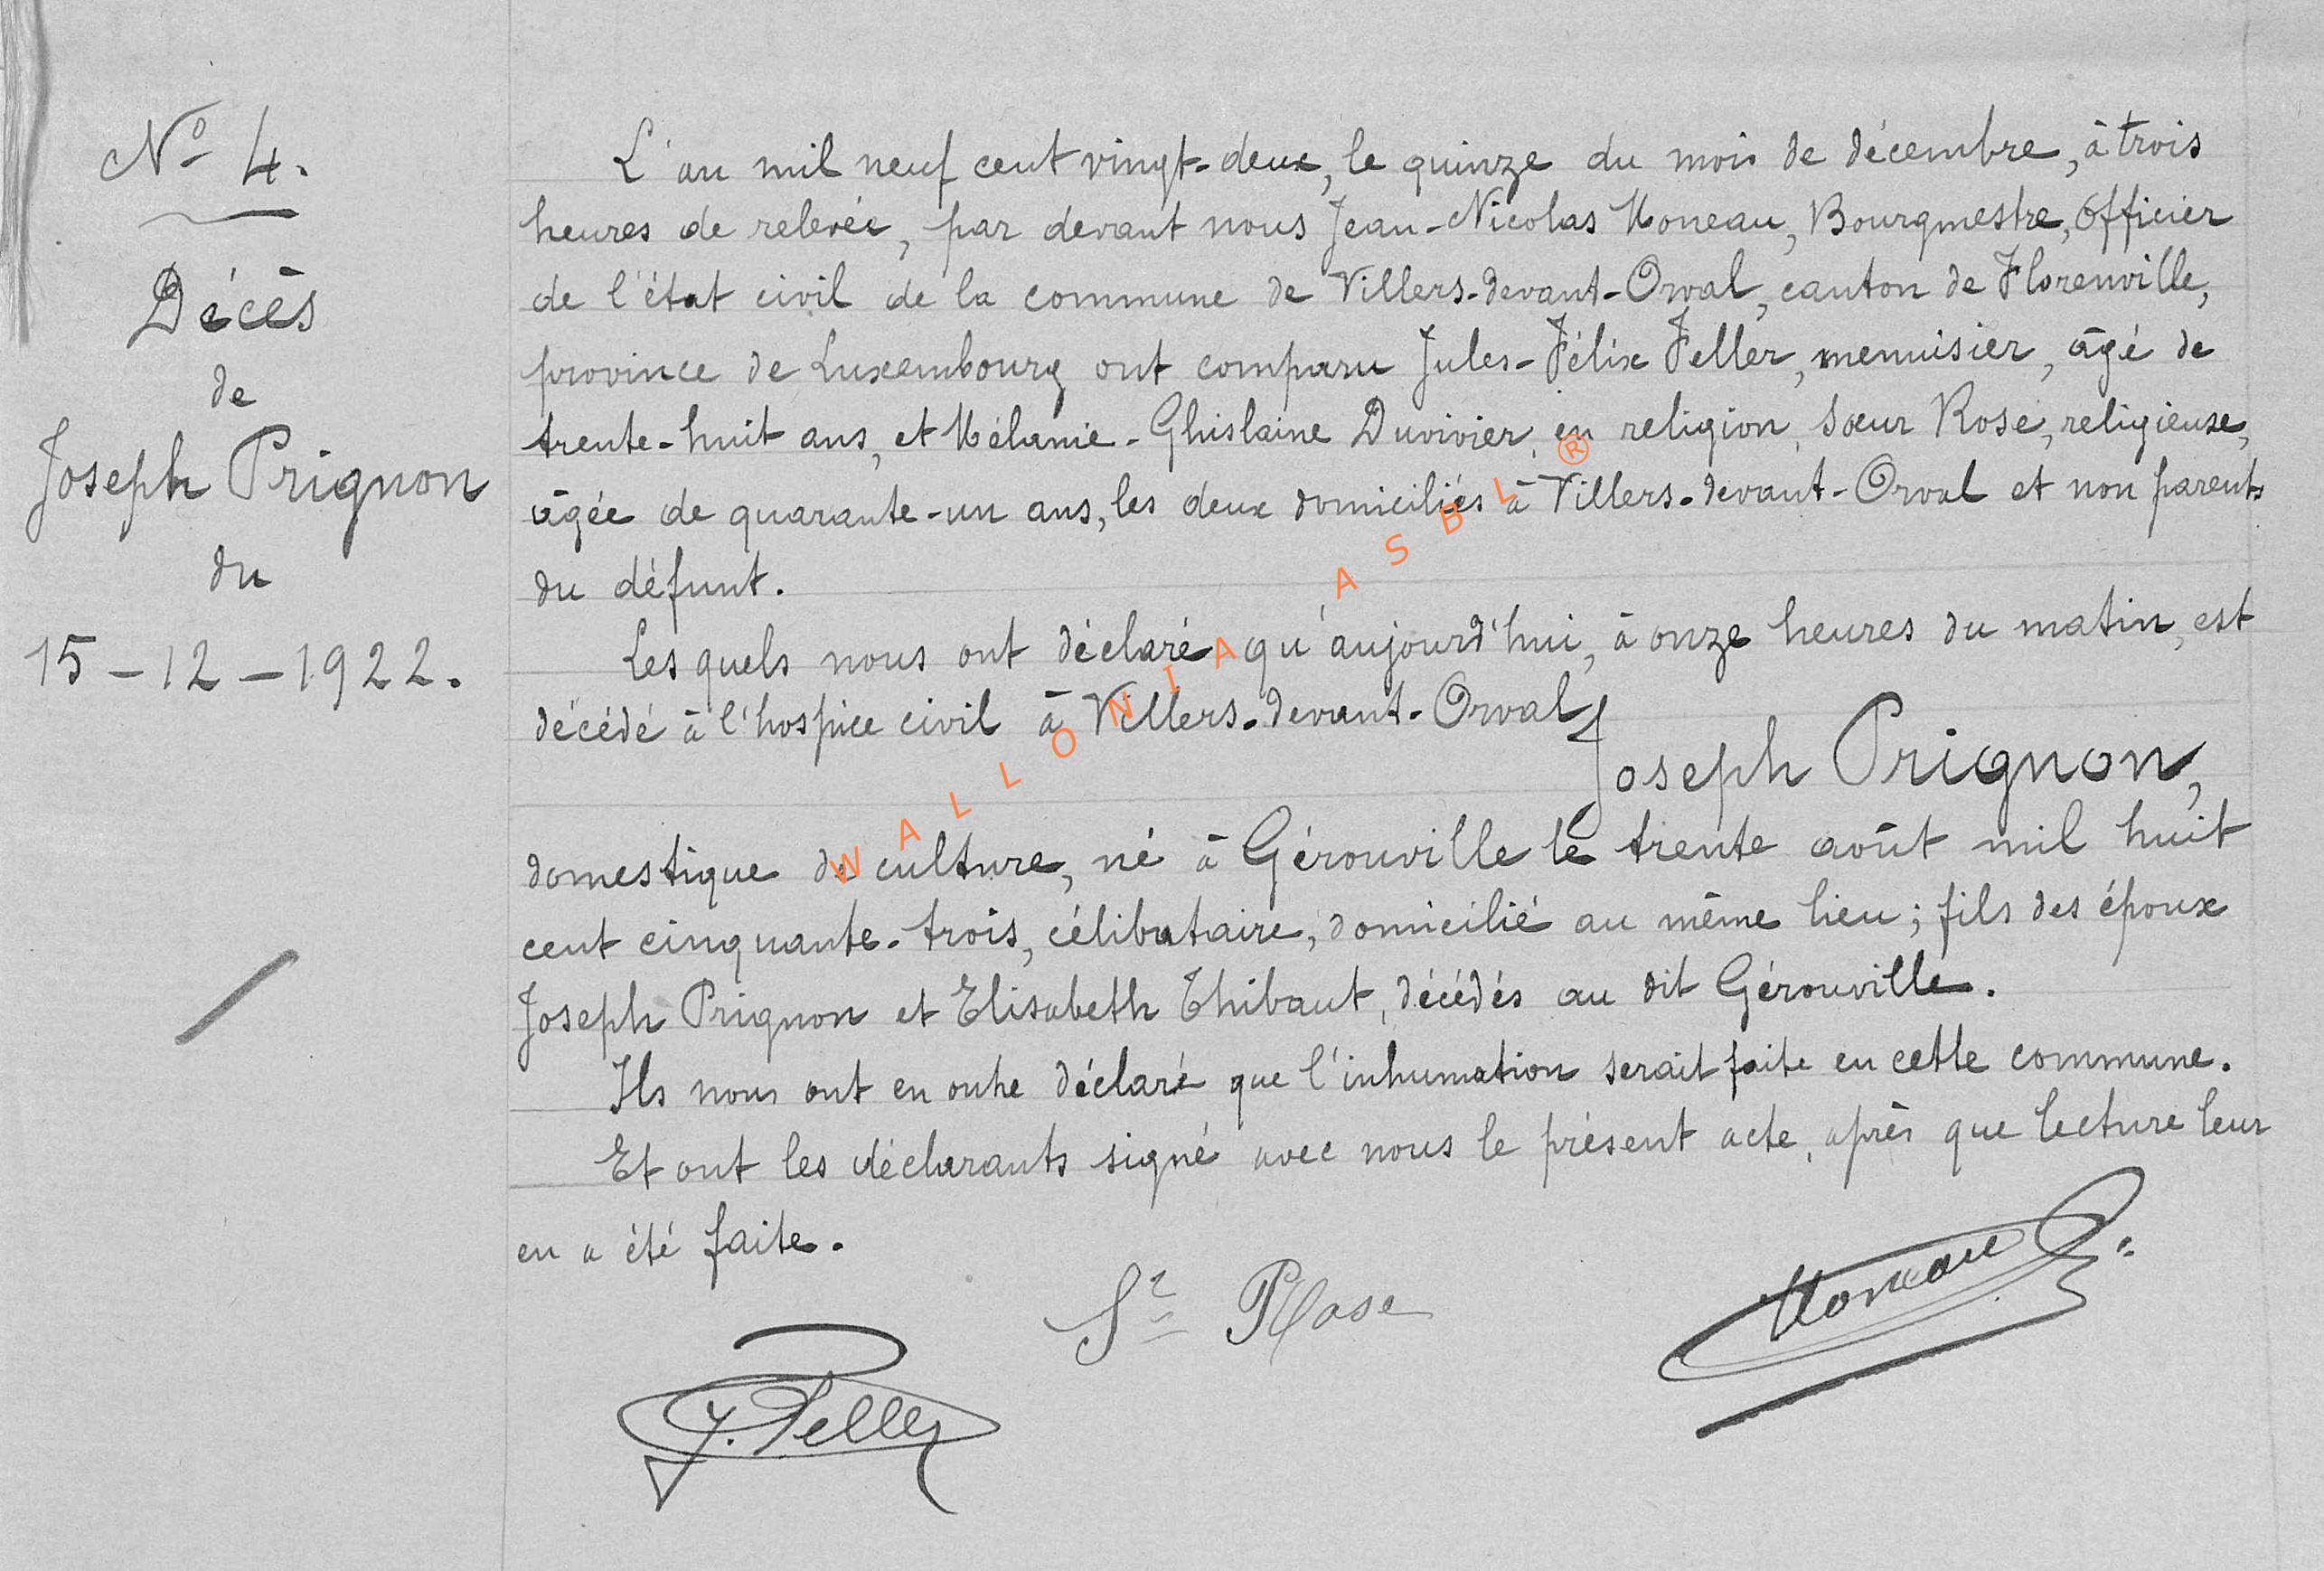 Nº 4.
Décès
de
Joseph Prignon
du
15-12-1922.
L'an mil neuf cent vingt-deux, le quinze du mois de décembre, à trois
heures de relevée, par devant nous Jean-Nicolas Moneau, Bourgmestre, Officier
de l'état civil de la commune de Villers-devant-Orval, canton de Florenville,
province de Luxembourg ont comparu Jules-Félix Feller, menuisier, âgé de
trente-huit ans, et Mélanie-Ghislaine Duvivier, en religion, Sœur Rose, religieuse,
âgée de quarante-un ans, les deux domiciliés à Villers-devant-Orval et non parents
du défunt.
Les quels nous ont déclaré qu'aujourd'hui, à onze heures du matin, est
décédé à l'hospice civil à Villers-devant-Orval,
Joseph Prignon,
domestique de culture, né à Gérouville le trente août mil huit
cent cinquante-trois, célibataire, domicilié au même lieu; fils des époux
Joseph Prignon et Elisabeth Thibaut, décédés au dit Gérouville.
Ils nous ont en outre déclaré que l'inhumation serait faite en cette commune.
Et ont les déclarants signé avec nous le présent acte, après que lecture leur
en a été faite.
Sr Rose
Moneau
J. Feller
WALLONIA ASBL ®